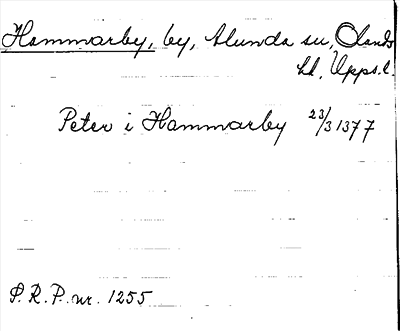 Hammarby, by, Alunda sn, Olands
hd, Upps. l.
Peter i Hammarby 23/3 1377
S. R. P. nr. 1255